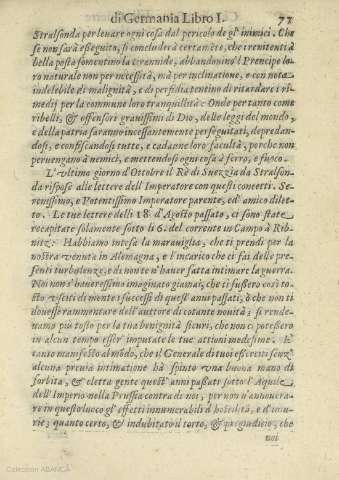 di Germania Libro I. 73
Stralsonda per leuare ogni cosa dal pericolo de gl' inimici. Che
se non sarà esseguito, si concluderà certamẽte, che trenitenti à
bella posta fomentino la tirannide, abbandonino 'l Prencipe lo-
ro naturale non per necessità, mà per inclinatione, e con nota
indelebile di malignità, e di perfidia tentino di ritardare i ri-
medij per la commune loro tranquillità: Onde per tanto come
ribelli, & offensori grauissimi di Dio, delle leggi del mondo,
e della patria saranno incessantemente perseguitati, depredan-
dosi, e confiscandosi tutte, e cadaune loro facultà, perche non
peruengano à nemici, e mettendosi ogni cosa à ferro, e fuoco.
L'vltimo giorno d'Ottobre il Rè di Suezzia da Stralson-
da rispose alle lettere dell' Imperatore con questi concetti. Se-
renissimo, e Potentissimo Imperatore parente, ed' amico dilet-
to. Le tue lettere delli 18 d'Agosto passato, ci sono state
recapitate solamente sotto li 6. del corrente in Campo à Rib-
nitz: Habbiamo intesa la marauiglia, che ti prendi per la
nostra venuta in Alemagna, e l'incarico che ci fai delle pre-
senti turbolenze, e di non te n'hauer fatta intimare la guerra.
Noi non s'haueressimo imaginato giamai, che ti fussero così to-
sto vsciti di mente i successi di quest' anni passati, ò che non ti
douesse rammentare dell'auttore di cotante nouità; si rende-
uamo più tosto per la tua benignità sicuri, che non ci potessero
in alcun tempo esser' imputate le tue attioni medesime. E
tanto manifesto al mõdo, che il Generale di tuoi esserciti senz'
alcuna preuia intimatione hà spinto vna buona mano di
sorbita, & eletta gente quest' anni passati sotto l'Aquile
dell'Imperio nella Prussia contra di noi, per non n'annouera-
re in questo luoco gl'effetti innumerabili d'hostilità, e d'iniu-
rie; quanto certo, & indubitato il torto, & pregiudicio, che
noi
Colección ABANCA